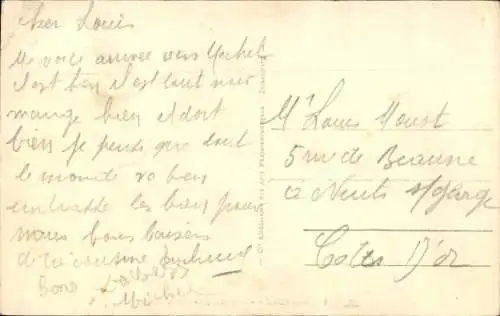 cher Louis
Me voila arrivée vers Michel
il est bien il est tout noir
mange bien et dort
bien je pense que tout
le monde va bien
embrasse les bien pour
nous bons baisers
de ta cousine
Bons Baisers
Michel
Mr Louis
5 rue de Beaune
à Nuits s/
Cotes D'or